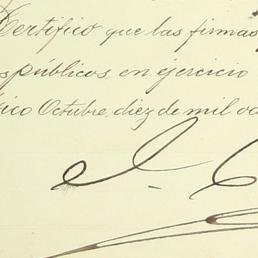 Certifico que las firmas
s públicos en ejercicio
ico Octubre diez de mil oc